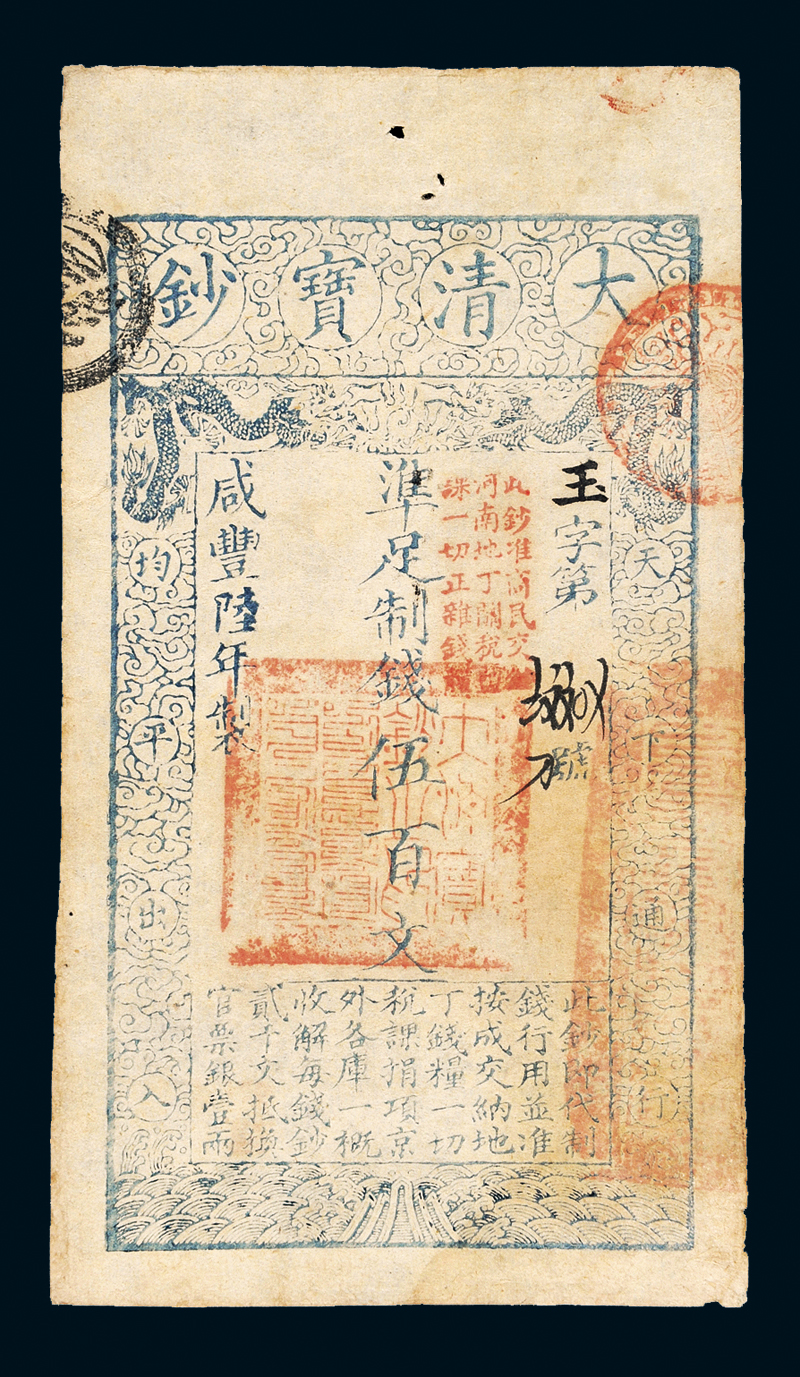 大清寶鈔
天下通行
均平出入
玉字第
號
此鈔准商民交納
河南地丁關稅鹽
課一切正雜錢糧
準足制錢伍百文
咸豐陸年製
此鈔即代制
錢行用並准
按成交納地
丁錢糧一切
稅課捐項京
外各庫一概
收解每錢鈔
貳千文抵換
官票銀壹兩